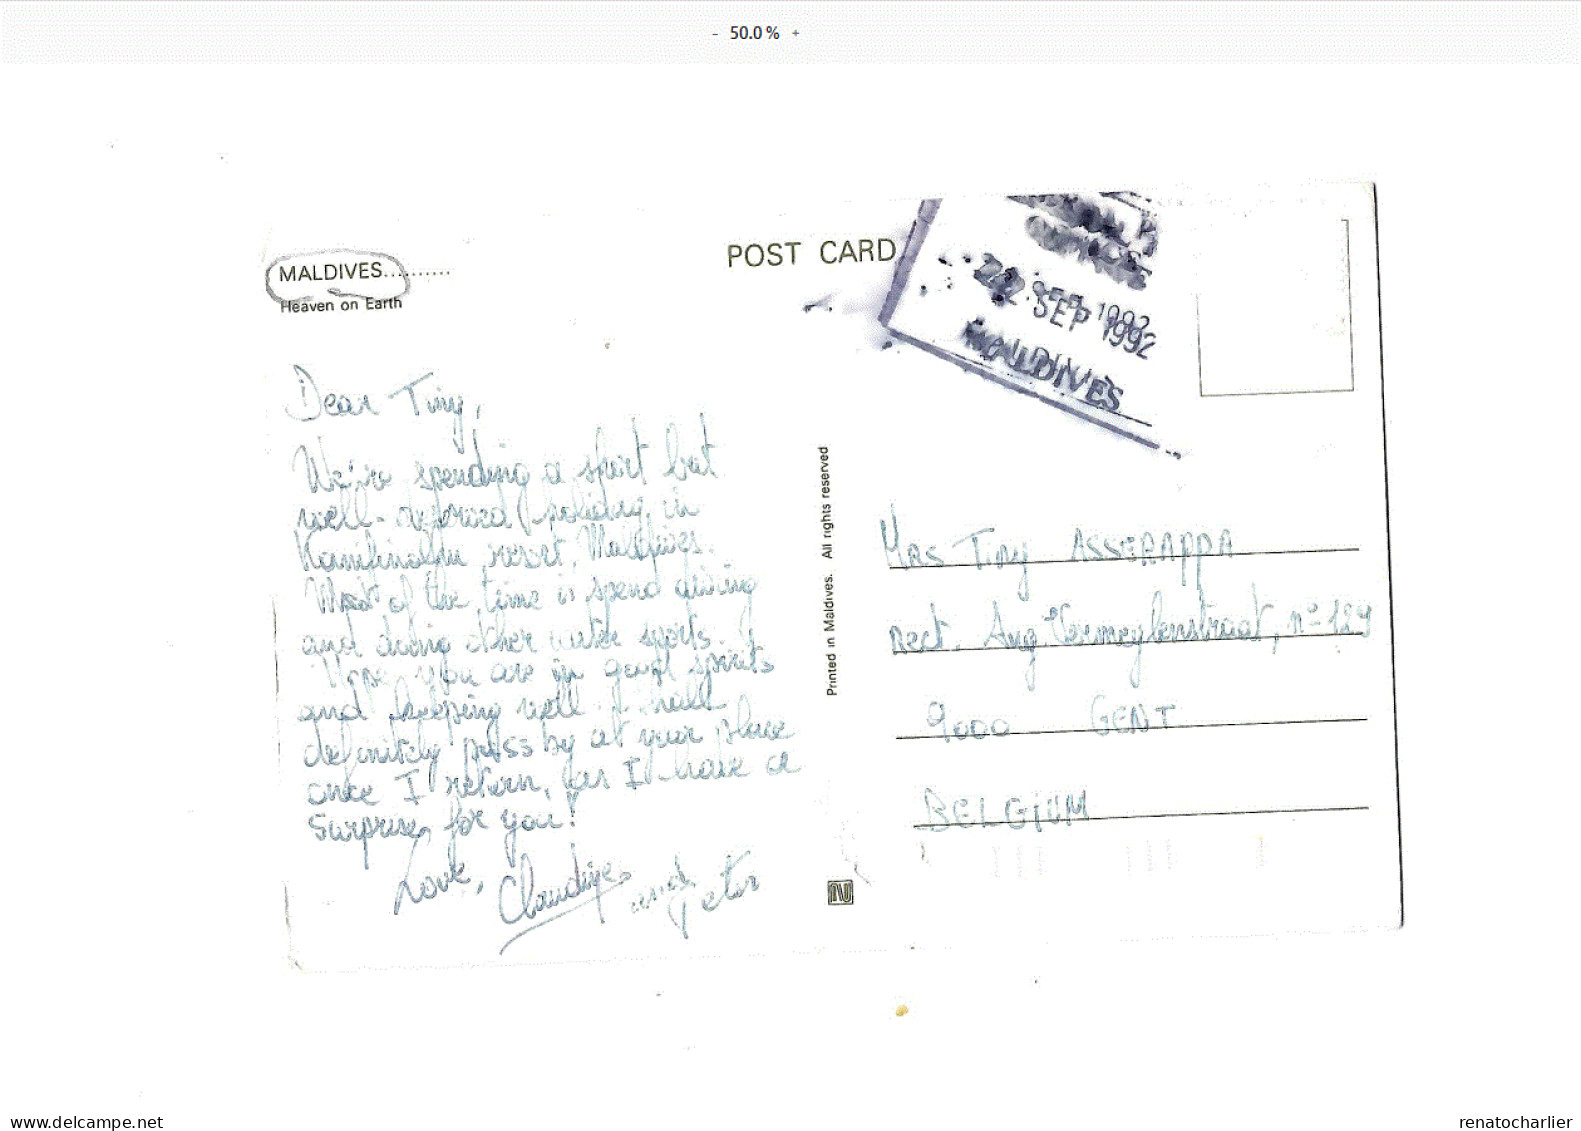 - 50.0 % +
MALDIVES..........
Heaven on Earth
POST CARD
22 SEP 1992
MALDIVES
Dear Tiny,
We're spending a short but
well-deserved holiday in
resort, Maldives.
Most of the time is spend diving
and doing other water sports.
Hope you are in good spirits
and keeping well. I shall
definitely pass by at your place
once I return, as I have a
surprise for you!
Love, Claudine
and Peter
Printed in Maldives. All rights reserved
Mrs Tiny ASSERAPPA
Aug Vermeylenstraat, n° 129
9000 GENT
BELGIUM
www.delcampe.net
renatocharlier